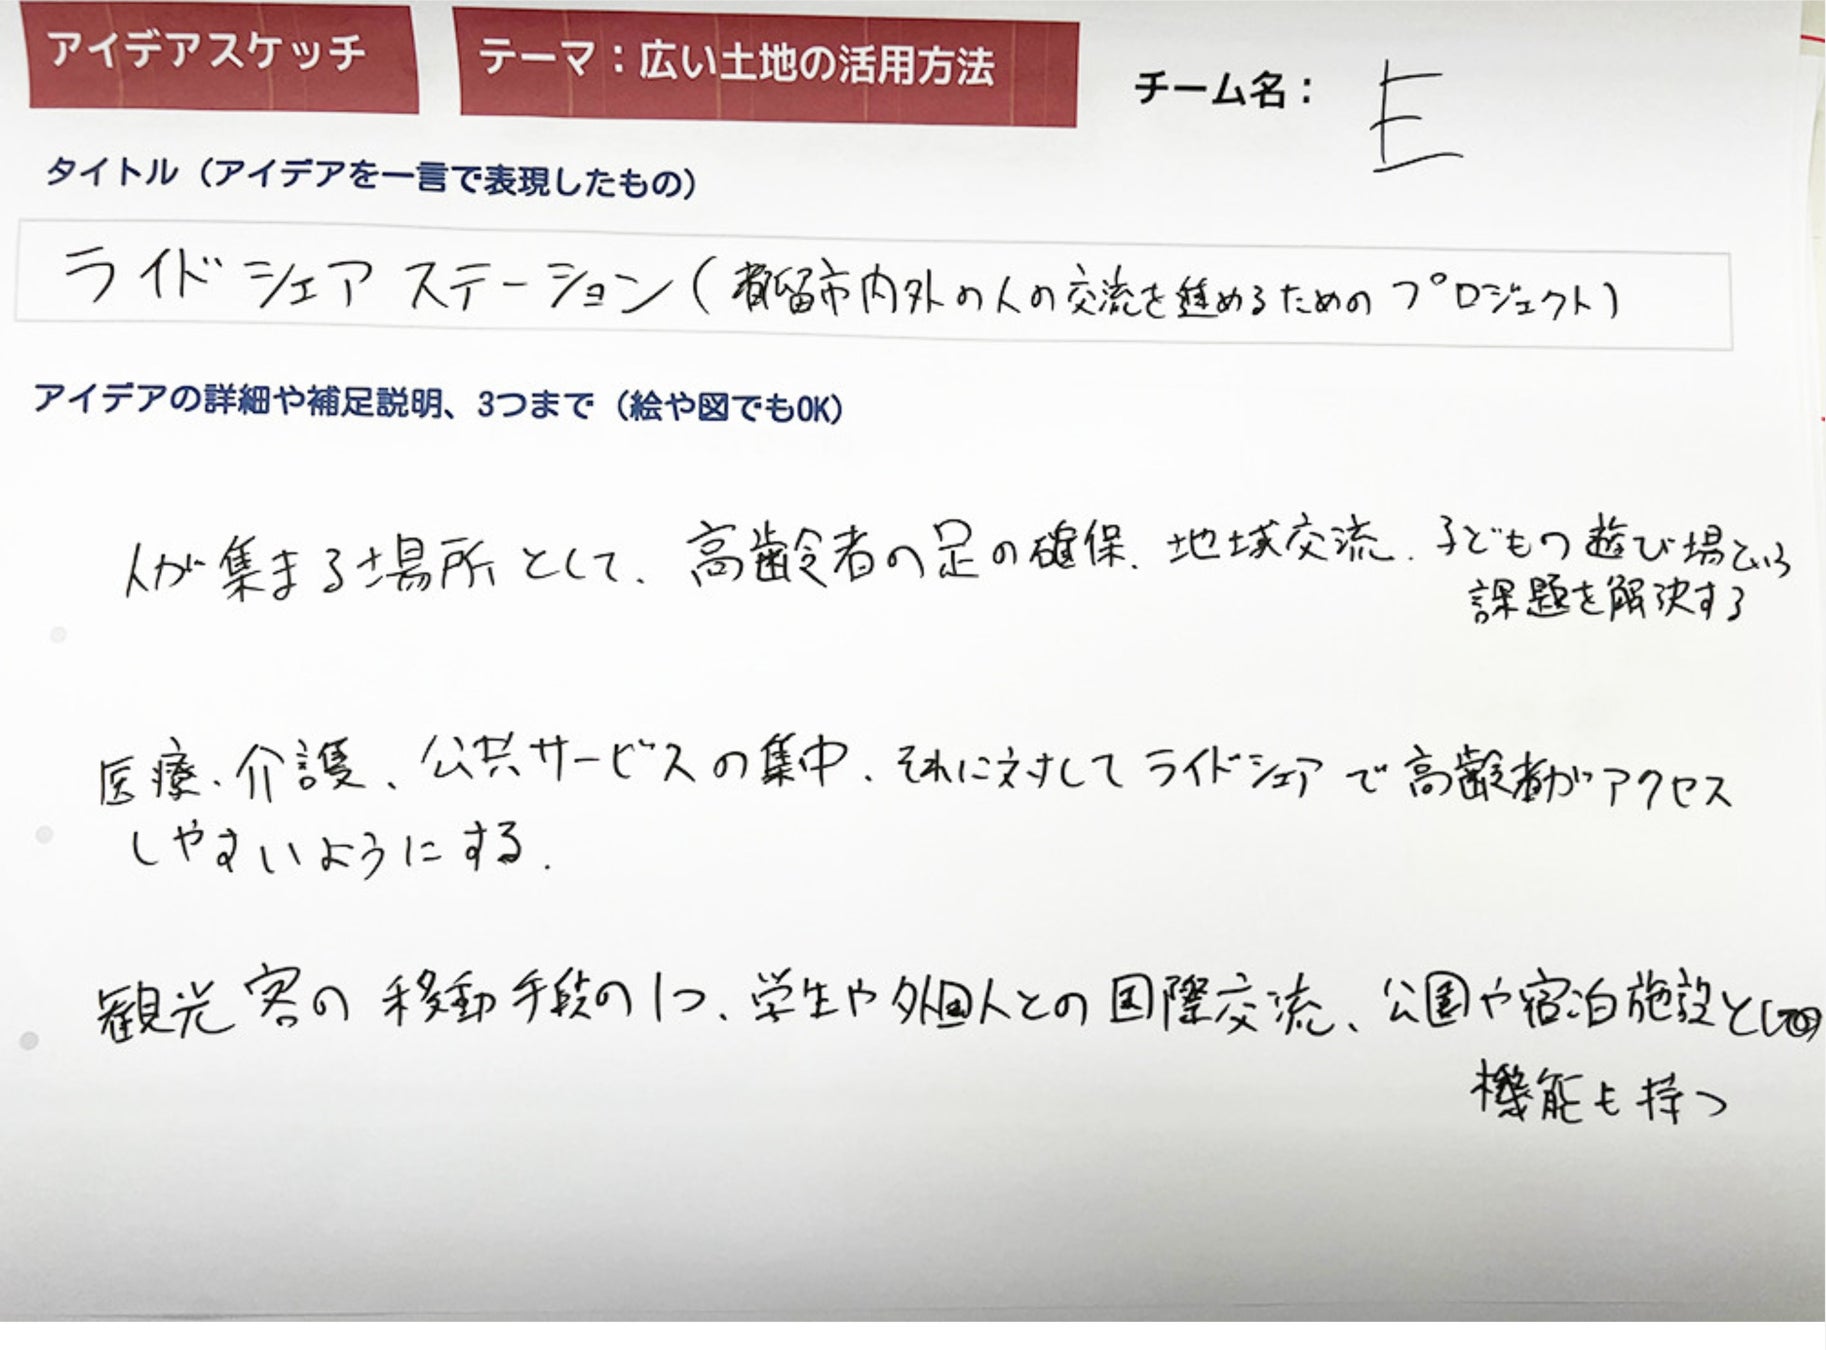 アイデアスケッチ
テーマ：広い土地の活用方法
チーム名： E
タイトル（アイデアを一言で表現したもの）
ライドシェアステーション（都留市内外の人の交流を進めるためのプロジェクト）
アイデアの詳細や補足説明、3つまで（絵や図でもOK）
人が集まる場所として、高齢者の足の確保、地域交流、子どもの遊び場という
課題を解決する
医療、介護、公共サービスの集中、それに対してライドシェアで高齢者がアクセス
しやすいようにする.
観光客の移動手段の1つ、学生や外国人との国際交流、公園や宿泊施設としての
機能も持つ